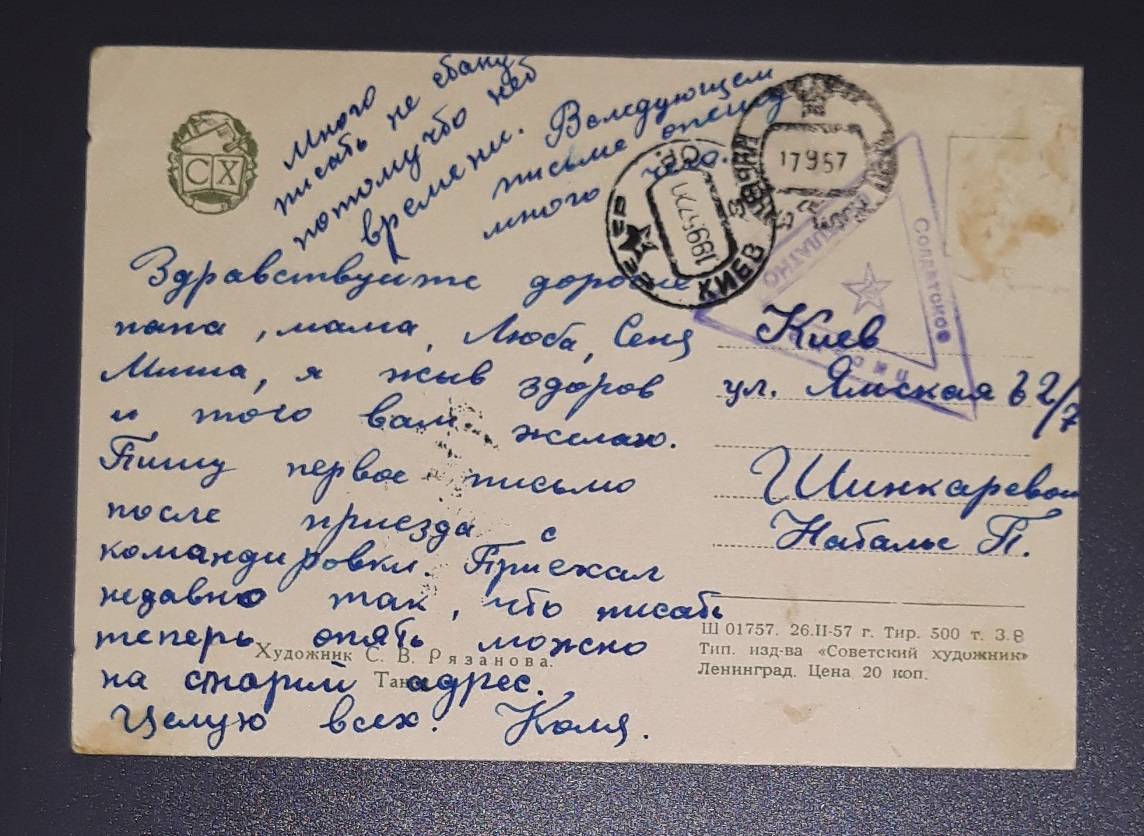 много
писать не
потомучто
времени. Вследующем
письме опишу
много чего.
СХ
17957
19957
КИЕВ
Солдатское
письмо
бесплатно
Здравствуйте дорогие
папа, мама, Люба, Сеня
Миша, я жыв здоров
и того вам желаю.
Пишу первое письмо
после приезда с
командировки. Приехал
недавно так, что писать
теперь опять можно
на старий адрес.
Целую всех. Коля.
Киев
ул. Ямская 62/7
Шинкаревой
Наталье П.
Художник С. В. Рязанова.
Ш 01757. 26.II-57 г. Тир. 500 т. З. 8
Тип. изд-ва «Советский художник»
Ленинград. Цена 20 коп.